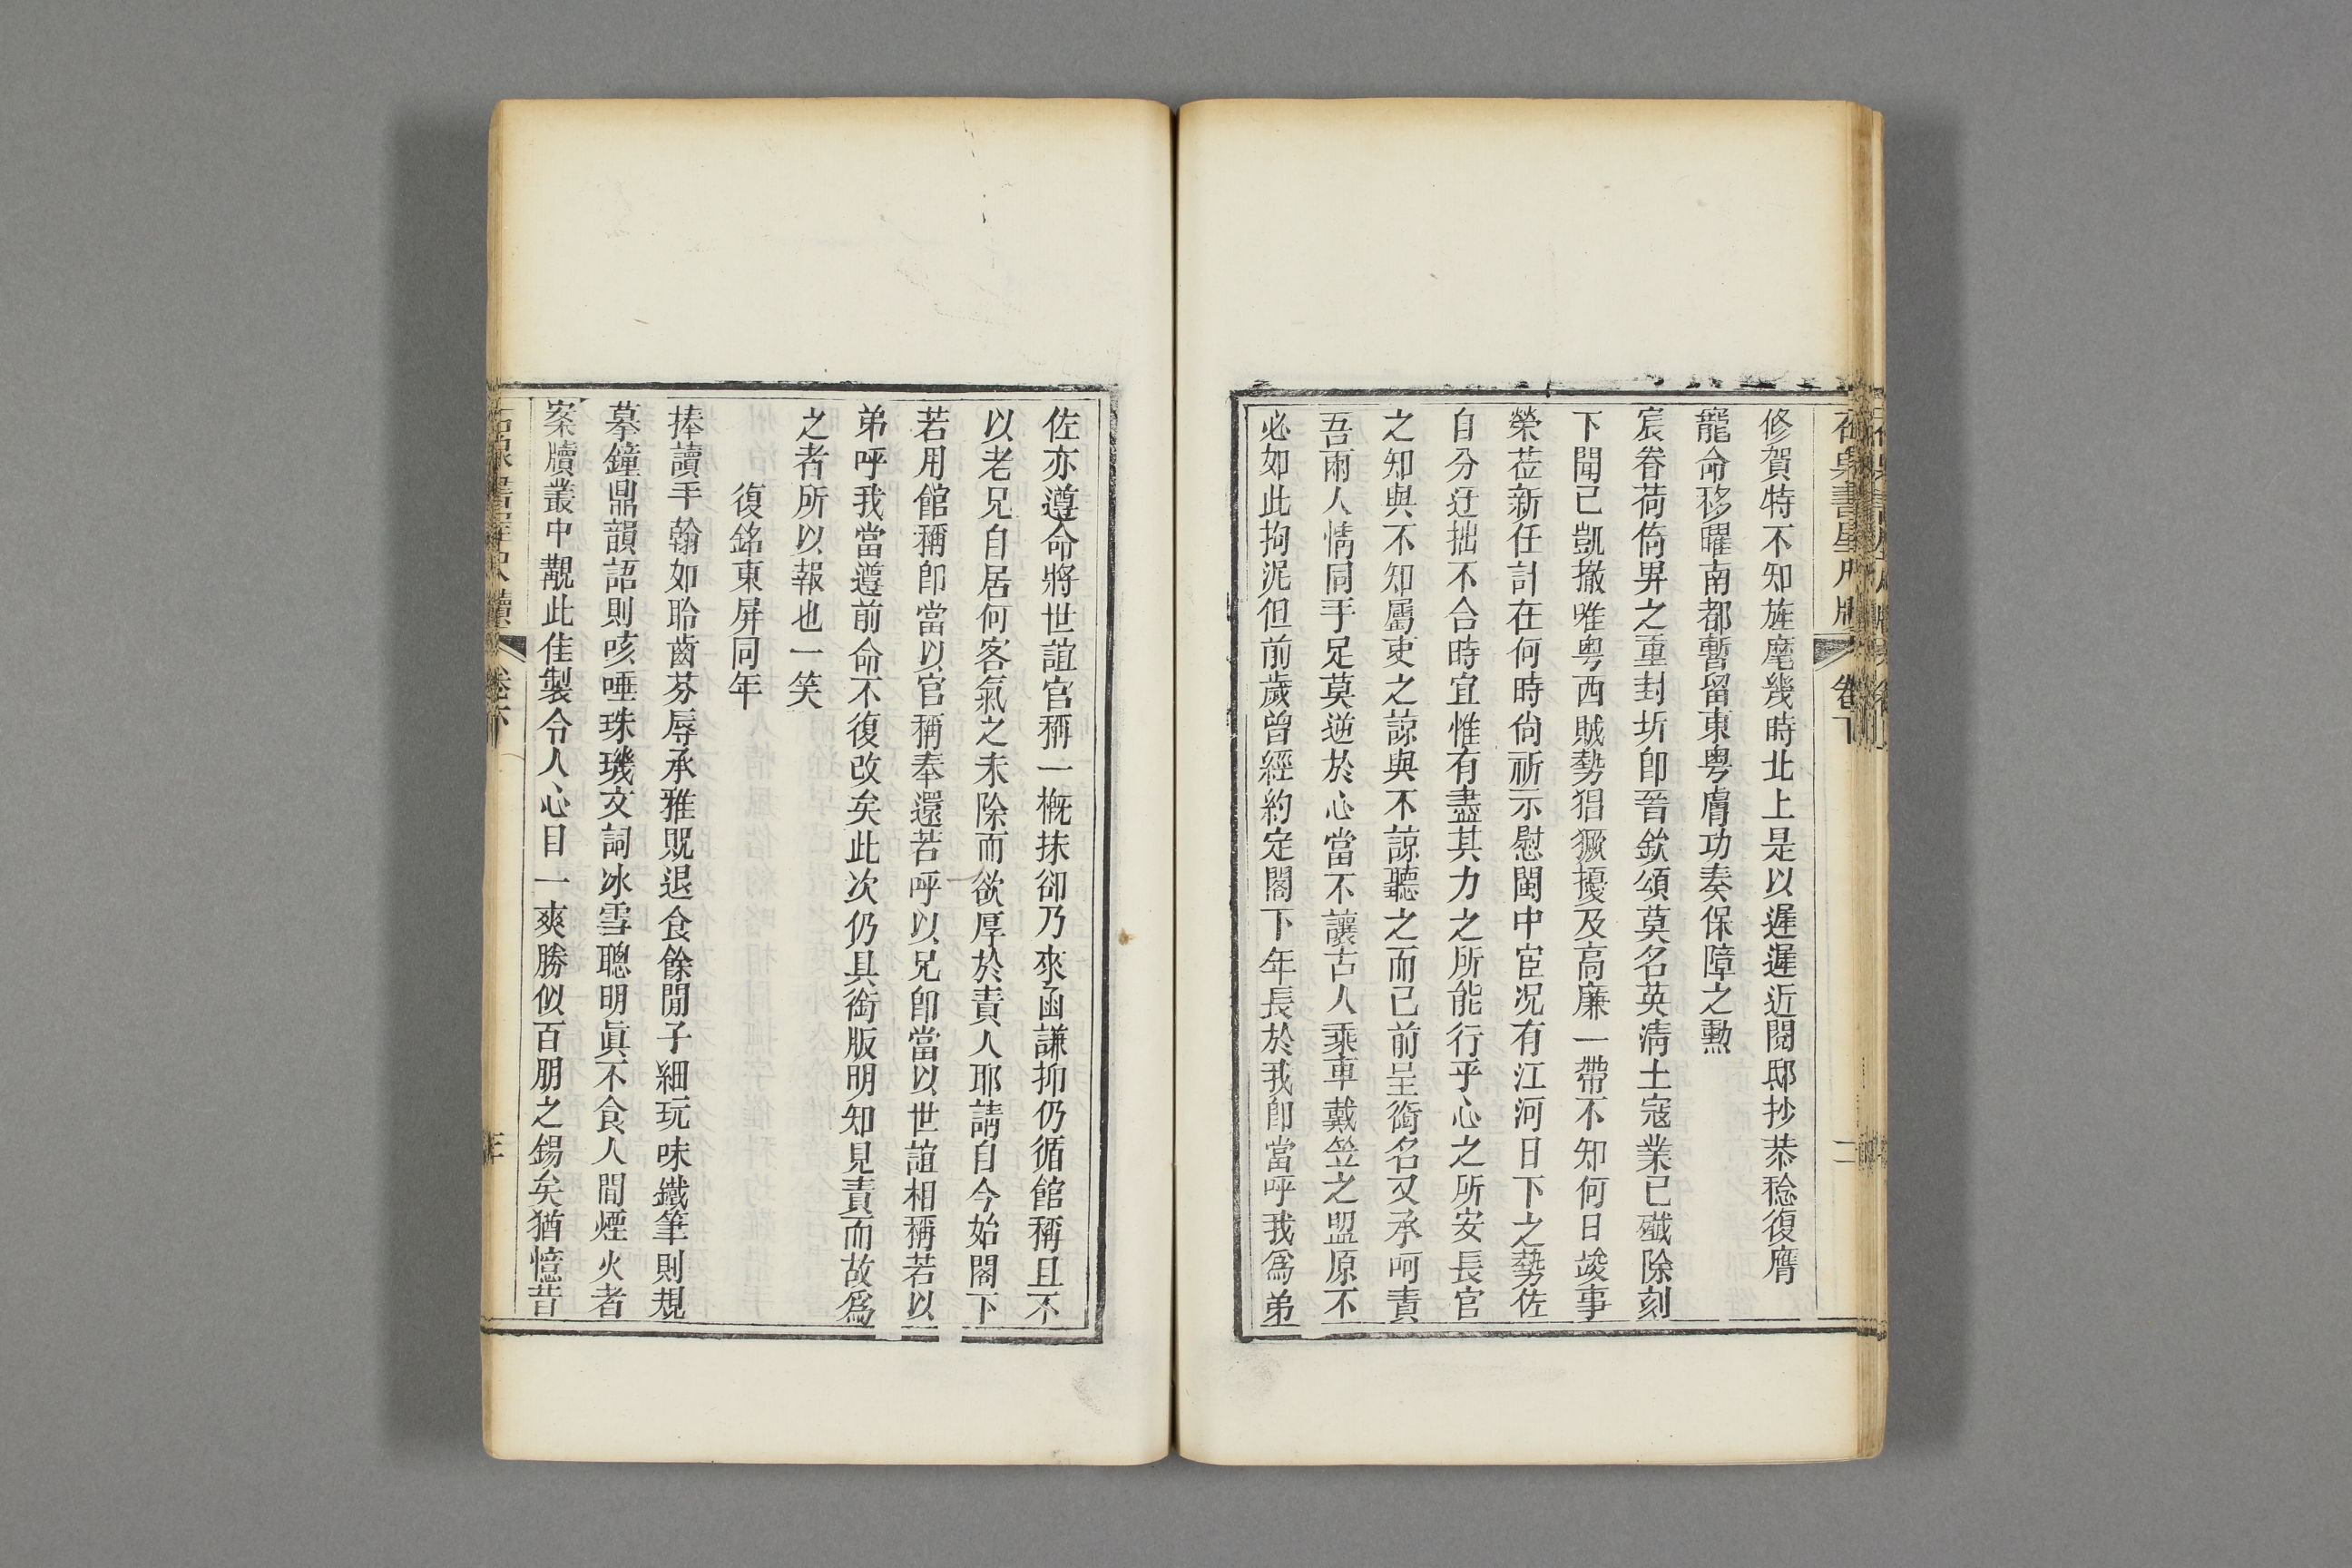 修賀特不知旌麾幾時北上是以遲遲近閱邸抄恭稔復膺
寵命移曜南都暫留東粵膚功奏保障之勲
宸眷荷倚畀之重封圻卽晉欽頌莫名英淸土寇業已殱除刻
下聞已凱撤唯粵西賊勢猖獗擾及高廉一帶不知何日竣事
榮莅新任計在何時尙祈示慰閩中宦况有江河日下之勢佐
自分迂拙不合時宜惟有盡其力之所能行乎心之所安長官
之知與不知屬吏之諒與不諒聽之而已前呈銜名又承呵責
吾兩人情同手足莫逆於心當不讓古人乘車戴笠之盟原不
必如此拘泥但前歲曾經約定閣下年長於我卽當呼我爲弟
佐亦遵命將世誼官稱一槪抹卻乃來函謙抑仍循館稱且不
以老兄自居何客氣之未除而欲厚於責人耶請自今始閣下
若用館稱卽當以官稱奉還若呼以兄卽當以世誼相稱若以
弟呼我當遵前命不復改矣此次仍具銜版明知見責而故爲
之者所以報也一笑
復銘東屏同年
捧讀手翰如聆齒芬辱承雅貺退食餘閒子細玩味鐵筆則規
摹鐘鼎韻語則咳唾珠璣文詞冰雪聰明眞不食人間煙火者
案牘叢中觀此佳製令人心目一爽勝似百朋之錫矣猶憶昔